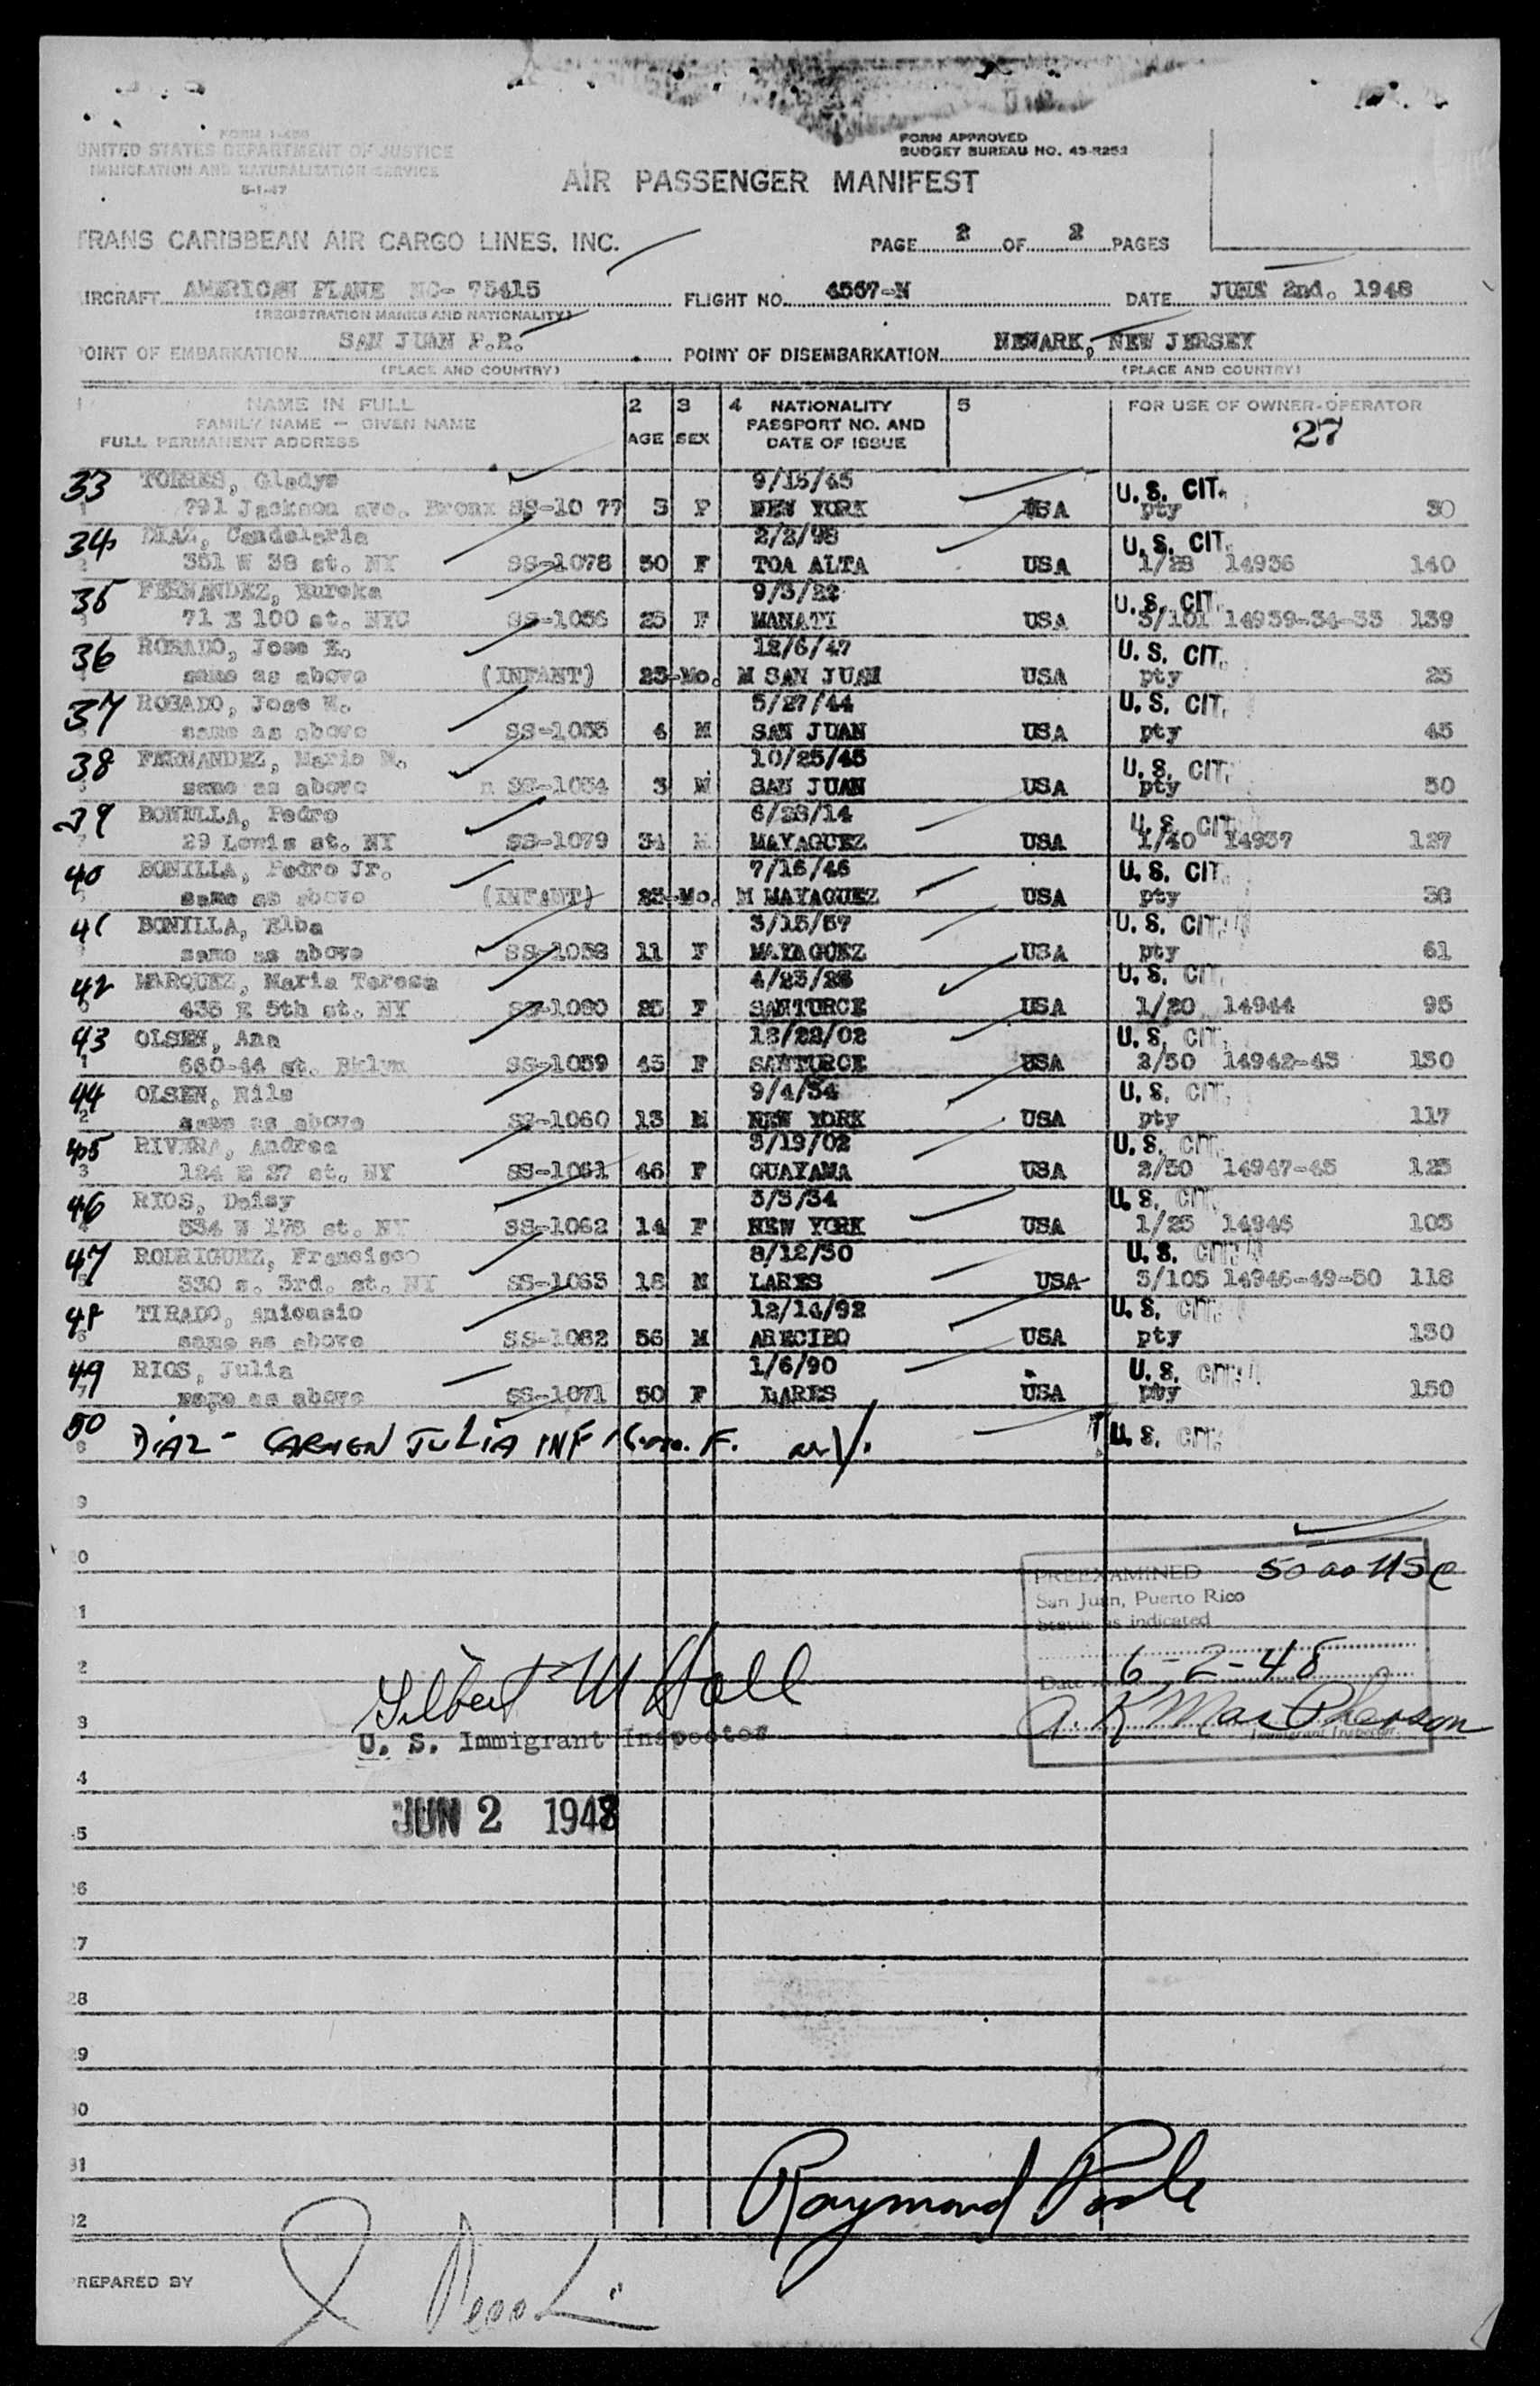 FORM I-466
UNITED STATES DEPARTMENT OF JUSTICE
IMMIGRATION AND NATURALIZATION SERVICE
5-1-47
FORM APPROVED
BUDGET BUREAU NO. 43-R253
AIR PASSENGER MANIFEST
TRANS CARIBBEAN AIR CARGO LINES, INC.
PAGE 2 OF 2 PAGES
AIRCRAFT AMERICAN PLANE NC- 75415 FLIGHT NO. 4567-N DATE JUNE 2nd. 1948
(REGISTRATION MARKS AND NATIONALITY)
POINT OF EMBARKATION SAN JUAN P.R. POINT OF DISEMBARKATION NEWARK, NEW JERSEY
(PLACE AND COUNTRY) (PLACE AND COUNTRY)
1 NAME IN FULL 2 3 4 NATIONALITY 5 FOR USE OF OWNER-OPERATOR
FAMILY NAME — GIVEN NAME PASSPORT NO. AND 27
FULL PERMANENT ADDRESS AGE SEX DATE OF ISSUE
33 TORRES, Gladys 9/15/45 U.S. CIT.
1 791 Jackson ave. Bronx SS-10 77 3 F NEW YORK USA pty 30
34 DIAZ, Candelaria 2/2/98 U.S. CIT.
2 351 W 38 st. NY SS-1078 50 F TOA ALTA USA 1/28 14936 140
35 FERNANDEZ, Eureka 9/3/22 U.S. CIT.
3 71 E 100 st. NYC SS-1056 25 F MANATI USA 3/101 14939-34-33 139
36 ROSADO, Jose E. 12/6/47 U.S. CIT.
same as above (INFANT) 23-Mo. M SAN JUAN USA pty 25
37 ROSADO, Jose W. 5/27/44 U.S. CIT.
same as above SS-1055 4 M SAN JUAN USA pty 45
38 FERNANDEZ, Mario M. 10/25/45 U.S. CIT.
same as above n SS-1054 3 M SAN JUAN USA pty 50
39 BONILLA, Pedro 6/28/14 U.S. CIT.
7 29 Lewis st. NY SS-1079 34 M MAYAGUEZ USA 1/40 14937 127
40 BONILLA, Pedro Jr. 7/16/46 U.S. CIT.
same as above (INFANT) 23-Mo. M MAYAGUEZ USA pty 36
41 BONILLA, Elba 3/15/37 U.S. CIT.
same as above SS-1058 11 F MAYAGUEZ USA pty 61
42 MARQUEZ, Maria Teresa 4/23/23 U.S. CIT.
435 E 5th st. NY SS-1080 25 F SANTURCE USA 1/20 14944 95
43 OLSEN, Ana 12/22/02 U.S. CIT.
1 660-44 st. Bklyn SS-1059 45 F SANTURCE USA 2/50 14942-43 130
44 OLSEN, Nils 9/4/34 U.S. CIT.
2 same as above SS-1060 13 M NEW YORK USA pty 117
45 RIVERA, Andrea 3/19/02 U.S. CIT.
3 124 E 27 st. NY SS-1061 46 F GUAYAMA USA 2/50 14947-45 125
46 RIOS, Daisy 3/3/34 U.S. CIT.
534 W 175 st. NY SS-1062 14 F NEW YORK USA 1/25 14946 105
47 RODRIGUEZ, Francisco 8/12/30 U.S. CIT.
5 330 s. 3rd. st. NY SS-1063 18 M LARES USA 3/105 14946-49-50 118
48 TIRADO, anicasio 12/14/92 U.S. CIT.
6 same as above SS-1082 56 M ARECIBO USA pty 130
49 RIOS, Julia 1/6/90 U.S. CIT.
7 same as above SS-1071 50 F LARES USA pty 150
50
8 DIAZ - CARMEN JULIA INF F. U.S. CIT.
9
20
1 PREEXAMINED 50 USC
San Juan, Puerto Rico
Status as indicated
2 Date 6-2-48
Gilbert M Hall
A. K. MacPherson
3 U. S. Immigrant Inspector Immigrant Inspector.
4
JUN 2 1948
25
26
27
28
29
30
31
Raymond
32
PREPARED BY